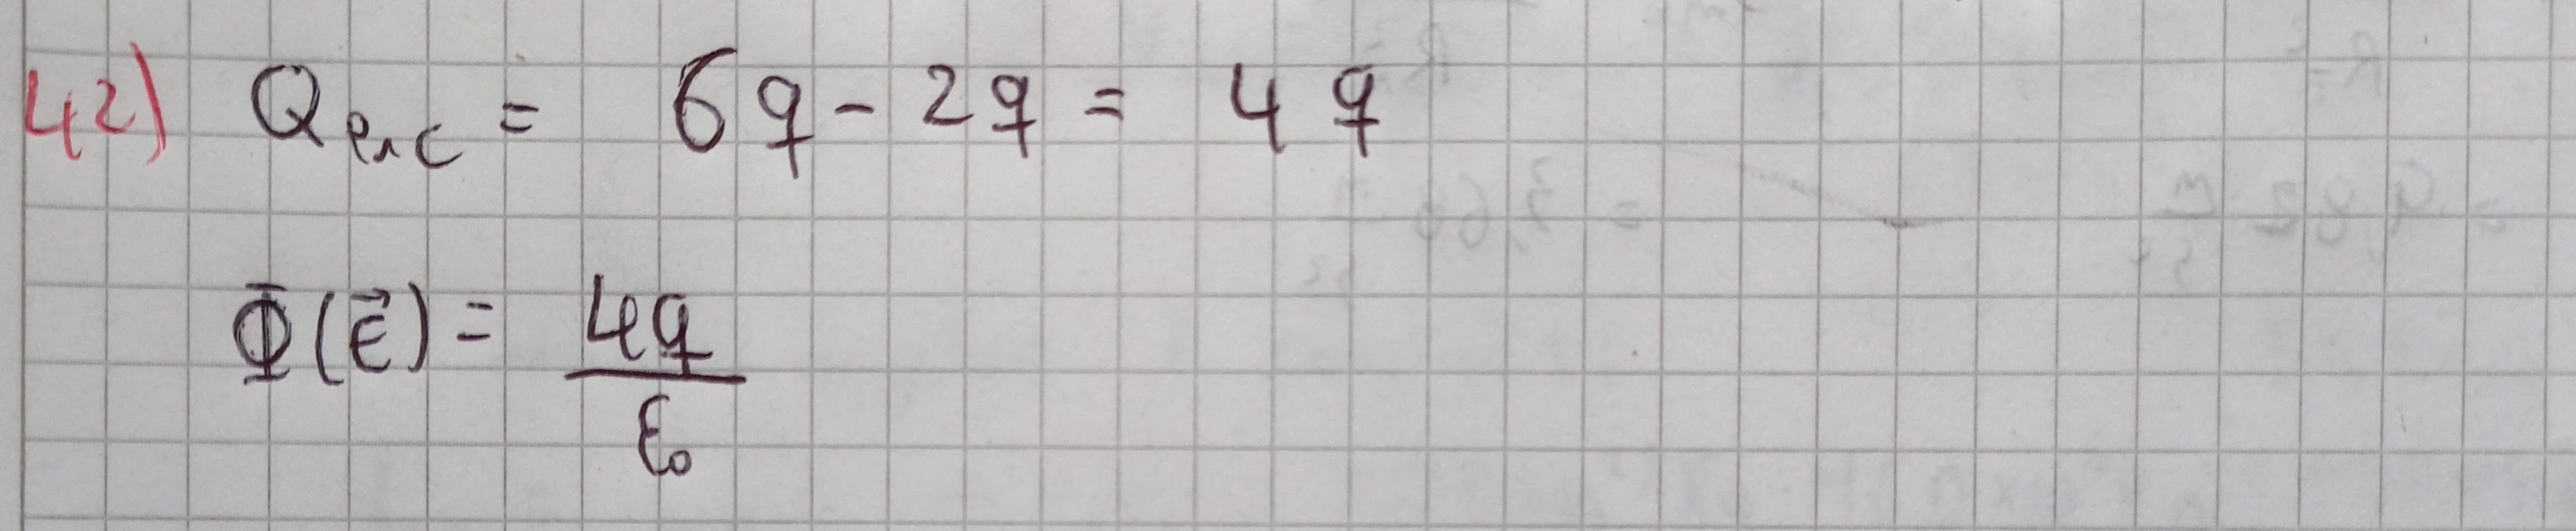 42) Qenc = 6q - 2q = 4q
Φ(E⃗) = 4q/ε₀